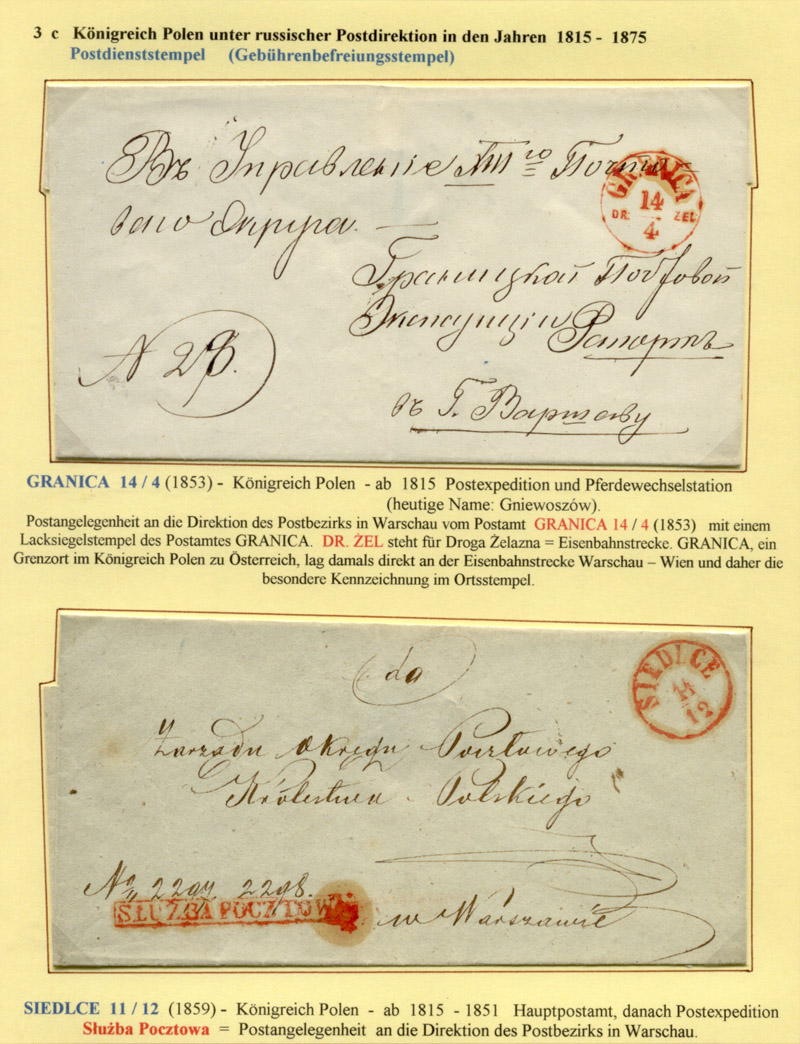 3 c Königreich Polen unter russischer Postdirektion in den Jahren 1815 - 1875
Postdienststempel (Gebührenbefreiungsstempel)
Въ Управленіе XIII го Почто-
ваго Округа. —
GRANICA
14
DR. ŻEL
4
Границкой Почтовой
Экспедиціи Рапортъ
N 28.
въ Г. Варшаву
GRANICA 14 / 4 (1853) - Königreich Polen - ab 1815 Postexpedition und Pferdewechselstation
(heutige Name: Gniewoszów).
Postangelegenheit an die Direktion des Postbezirks in Warschau vom Postamt GRANICA 14 / 4 (1853) mit einem
Lacksiegelstempel des Postamtes GRANICA. DR. ŻEL steht für Droga Żelazna = Eisenbahnstrecke. GRANICA, ein
Grenzort im Königreich Polen zu Österreich, lag damals direkt an der Eisenbahnstrecke Warschau – Wien und daher die
besondere Kennzeichnung im Ortsstempel.
do
SIEDLCE
11
12
Zarządu Okręgu Pocztowego
Królestwa Polskiego
No 2297 2298.
SŁUŻBA POCZTOWA
w Warszawie
SIEDLCE 11 / 12 (1859) - Königreich Polen - ab 1815 - 1851 Hauptpostamt, danach Postexpedition
Służba Pocztowa = Postangelegenheit an die Direktion des Postbezirks in Warschau.